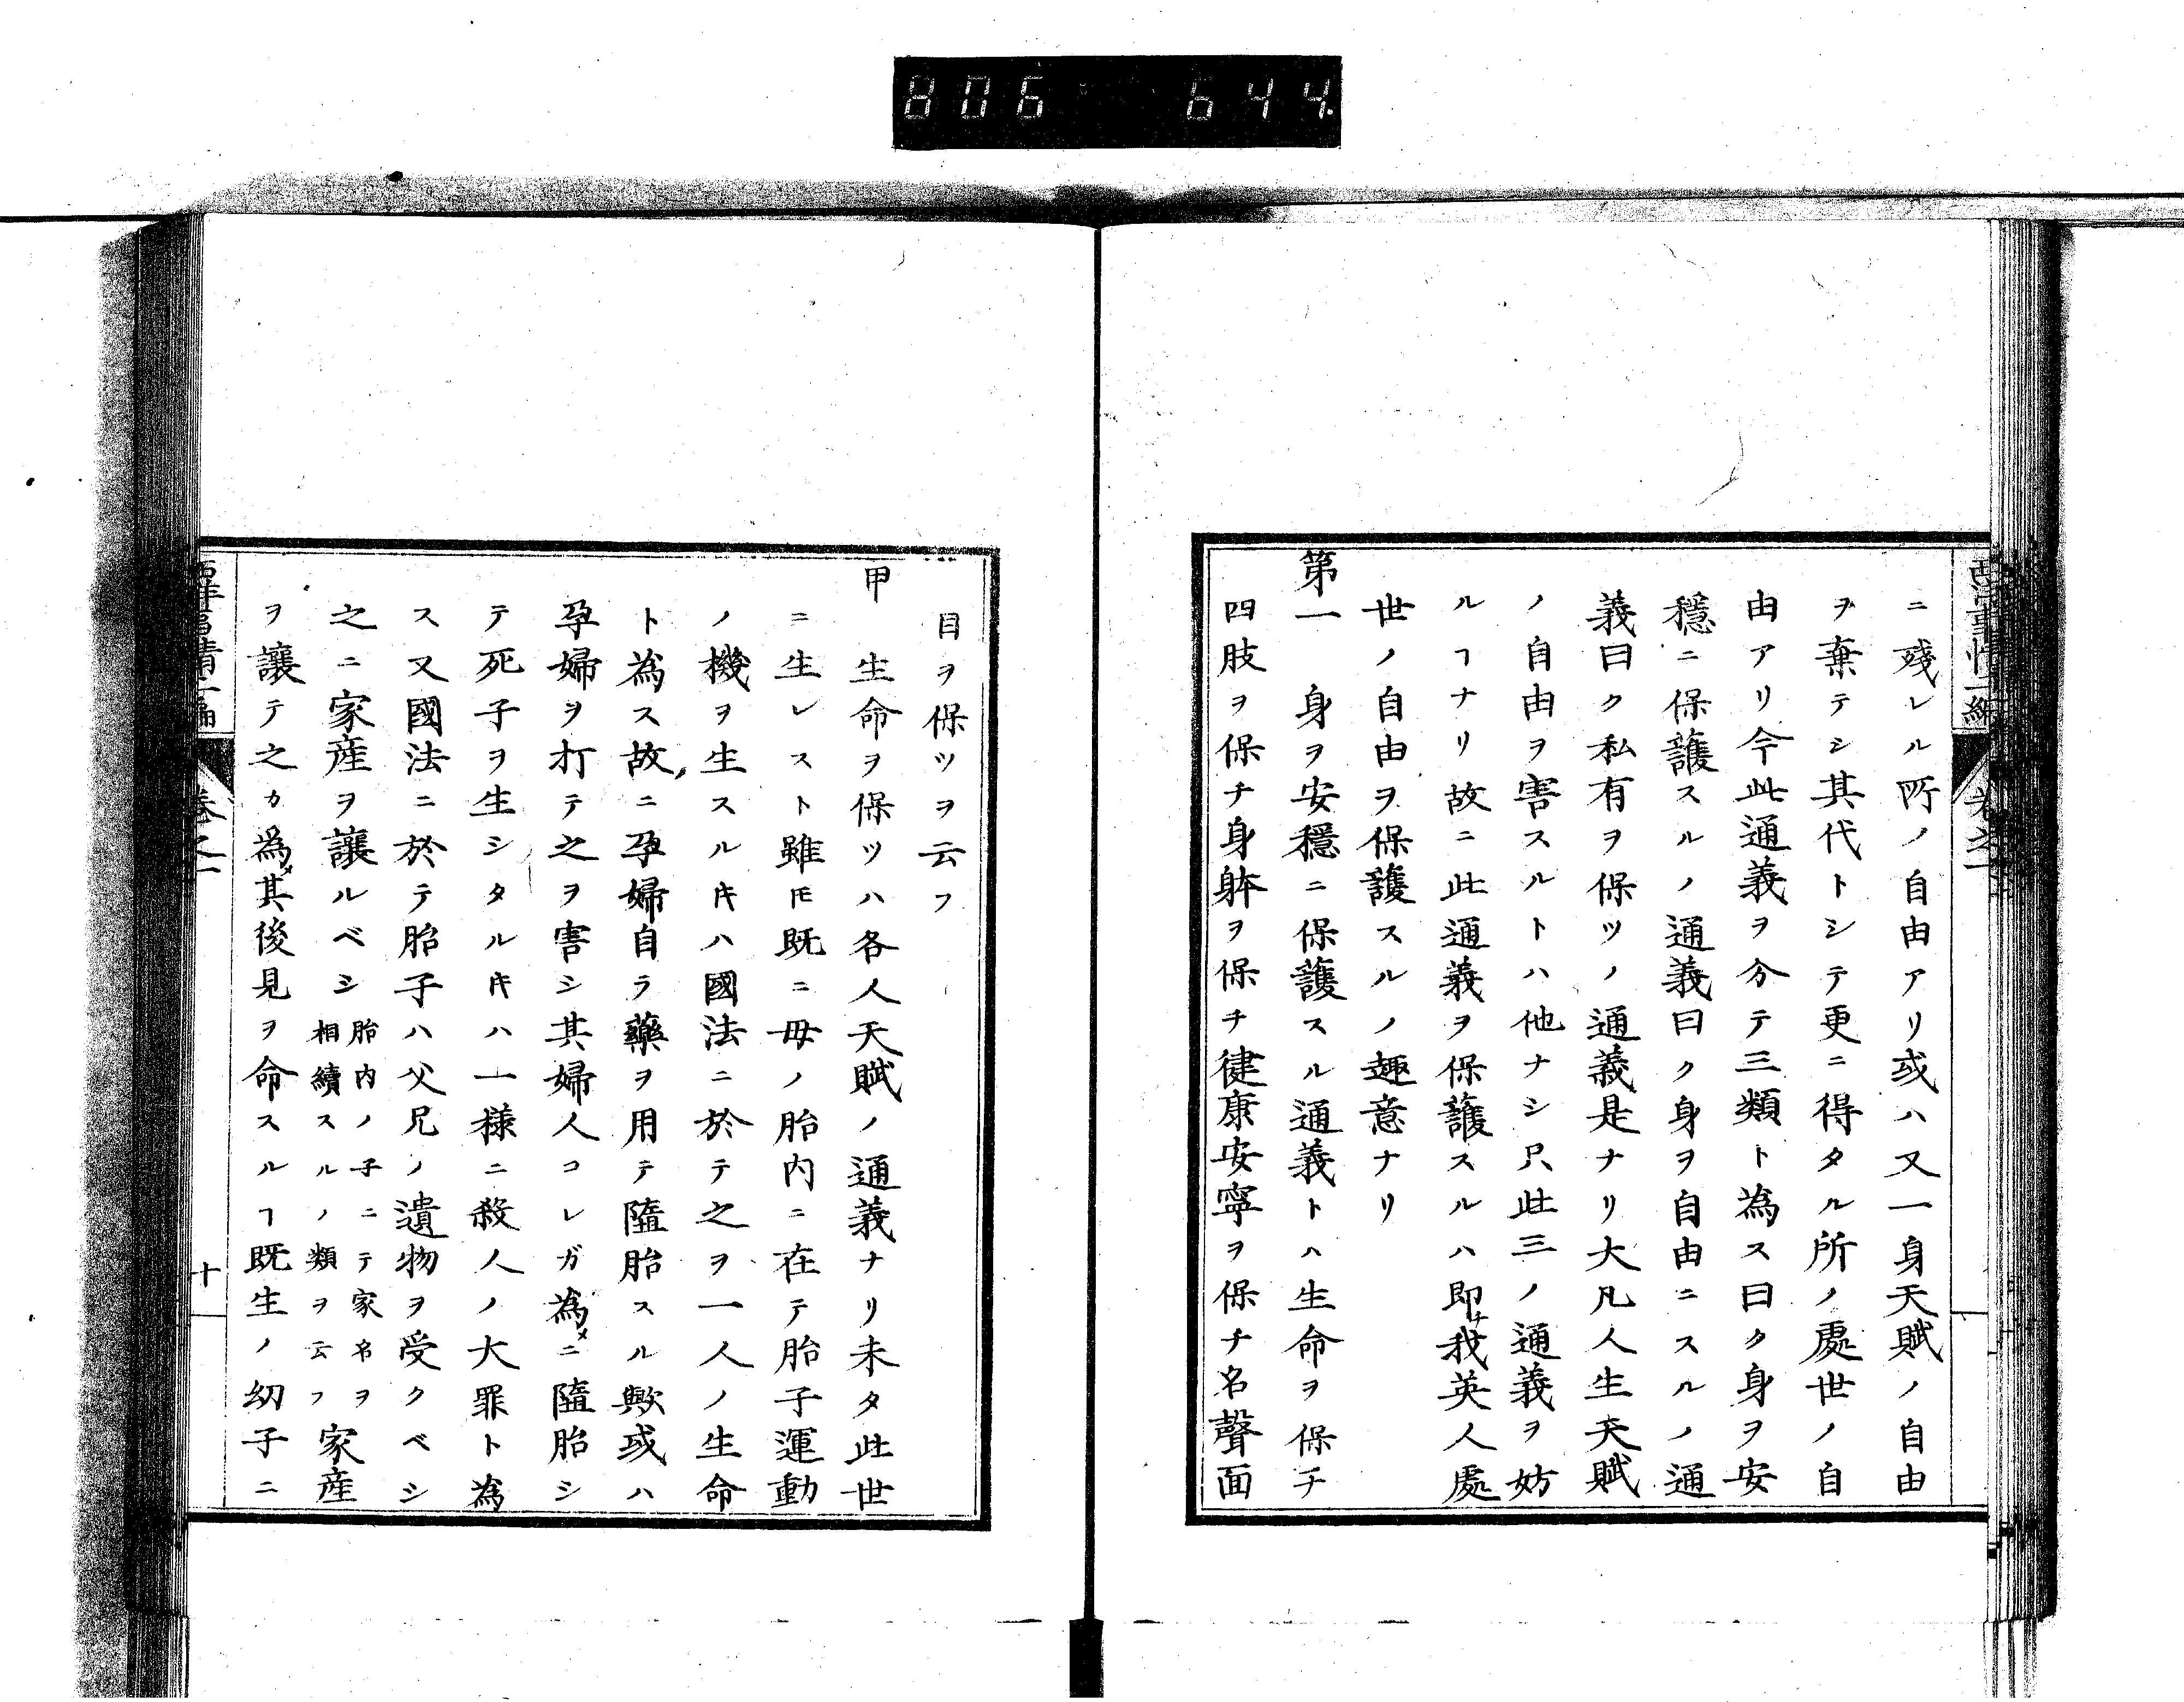 806 644
西洋事情二編 卷之一
ニ殘レル所ノ自由アリ或ハ又一身天賦ノ自由
ヲ棄テシ其代トシテ更ニ得タル所ノ處世ノ自
由アリ今此通義ヲ分テ三類ト為ス曰ク身ヲ安
穩ニ保護スルノ通義曰ク身ヲ自由ニスルノ通
義曰ク私有ヲ保ツノ通義是ナリ大凡人生天賦
ノ自由ヲ害スルトハ他ナシ只此三ノ通義ヲ妨
ルヿナリ故ニ此通義ヲ保護スルハ即チ我英人處
世ノ自由ヲ保護スルノ趣意ナリ
第一 身ヲ安穩ニ保護スル通義トハ生命ヲ保チ
四肢ヲ保チ身躰ヲ保チ健康安寧ヲ保チ名聲面
目ヲ保ツヲ云フ
甲 生命ヲ保ツハ各人天賦ノ通義ナリ未タ此世
ニ生レスト雖𪜈既ニ母ノ胎内ニ在テ胎子運動
ノ機ヲ生スル𪜈ハ國法ニ於テ之ヲ一人ノ生命
ト為ス故ニ孕婦自ラ藥ヲ用テ隨胎スル歟或ハ
孕婦ヲ打テ之ヲ害シ其婦人コレガ為メニ隨胎シ
テ死子ヲ生シタル𪜈ハ一樣ニ殺人ノ大罪ト為
ス又國法ニ於テ胎子ハ父兄ノ遺物ヲ受クベシ
之ニ家産ヲ讓ルベシ 胎内ノ子ニテ家名ヲ相續スルノ類ヲ云フ 家産
ヲ讓テ之カ爲メ其後見ヲ命スルヿ既生ノ幼子ニ
西洋事情二編 卷之一 十